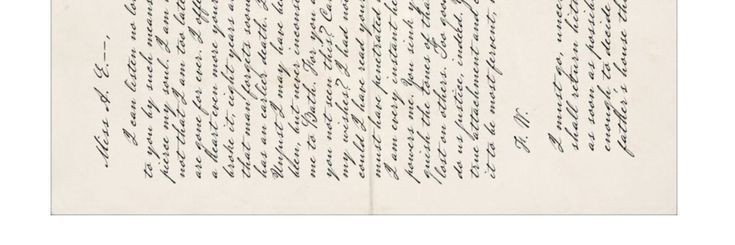 Miss A. E.—,
I can listen no lo
to you by such means
pierce my soul. I am
not that I am too late
are gone for ever. I off
a heart even more your
broke it, eight years a
that man forgets soon
has an earlier death. I
Unjust I may have be
but never incons
me to Bath. For you
you not seen this? Ca
my wishes? I had no
could I have read your
must have penetrat
I am every instant h
powers me. You sink
guish the tones of tha
lost on others. Too goo
do us justice, indeed.
true attachment and
it to be most fervent,
F. W.
I must go, unce
shall return hith
as soon as possib
enough to decide
father's house th